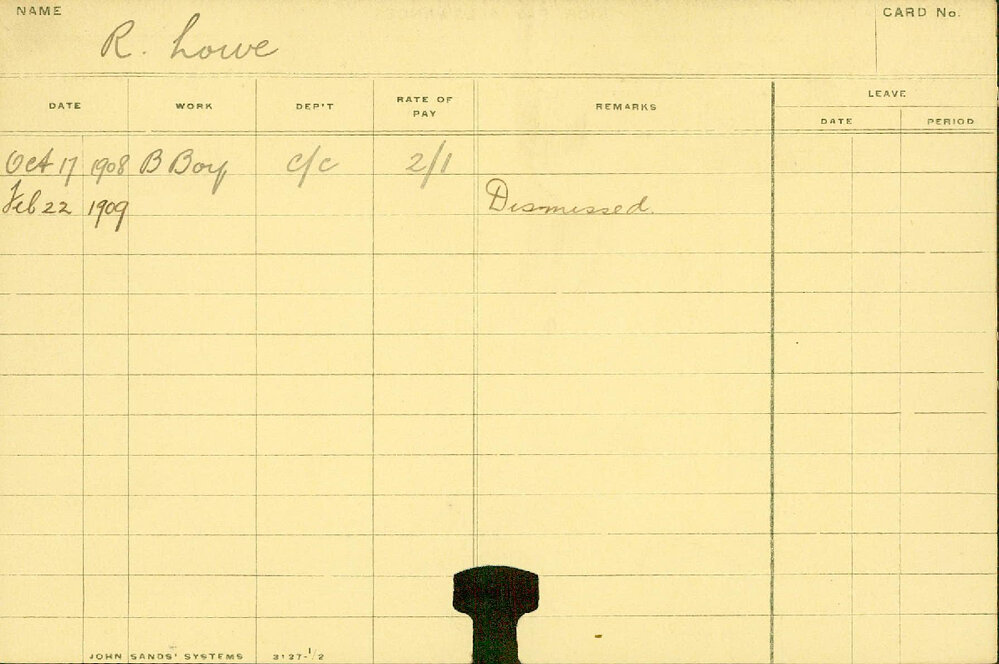 NAME
CARD No.
R. Lowe
DATE WORK DEP'T RATE OF PAY REMARKS LEAVE
DATE PERIOD
Oct 17 1908 B Boy c/c 2/1
Feb 22 1909 Dismissed.
JOHN SANDS' SYSTEMS 3127-1/2